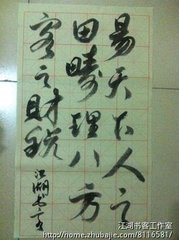 易天下人之
田疇理八方
客之财税
江湖书客
江湖书客工作室
http://home.zhubajie.com/81165817/